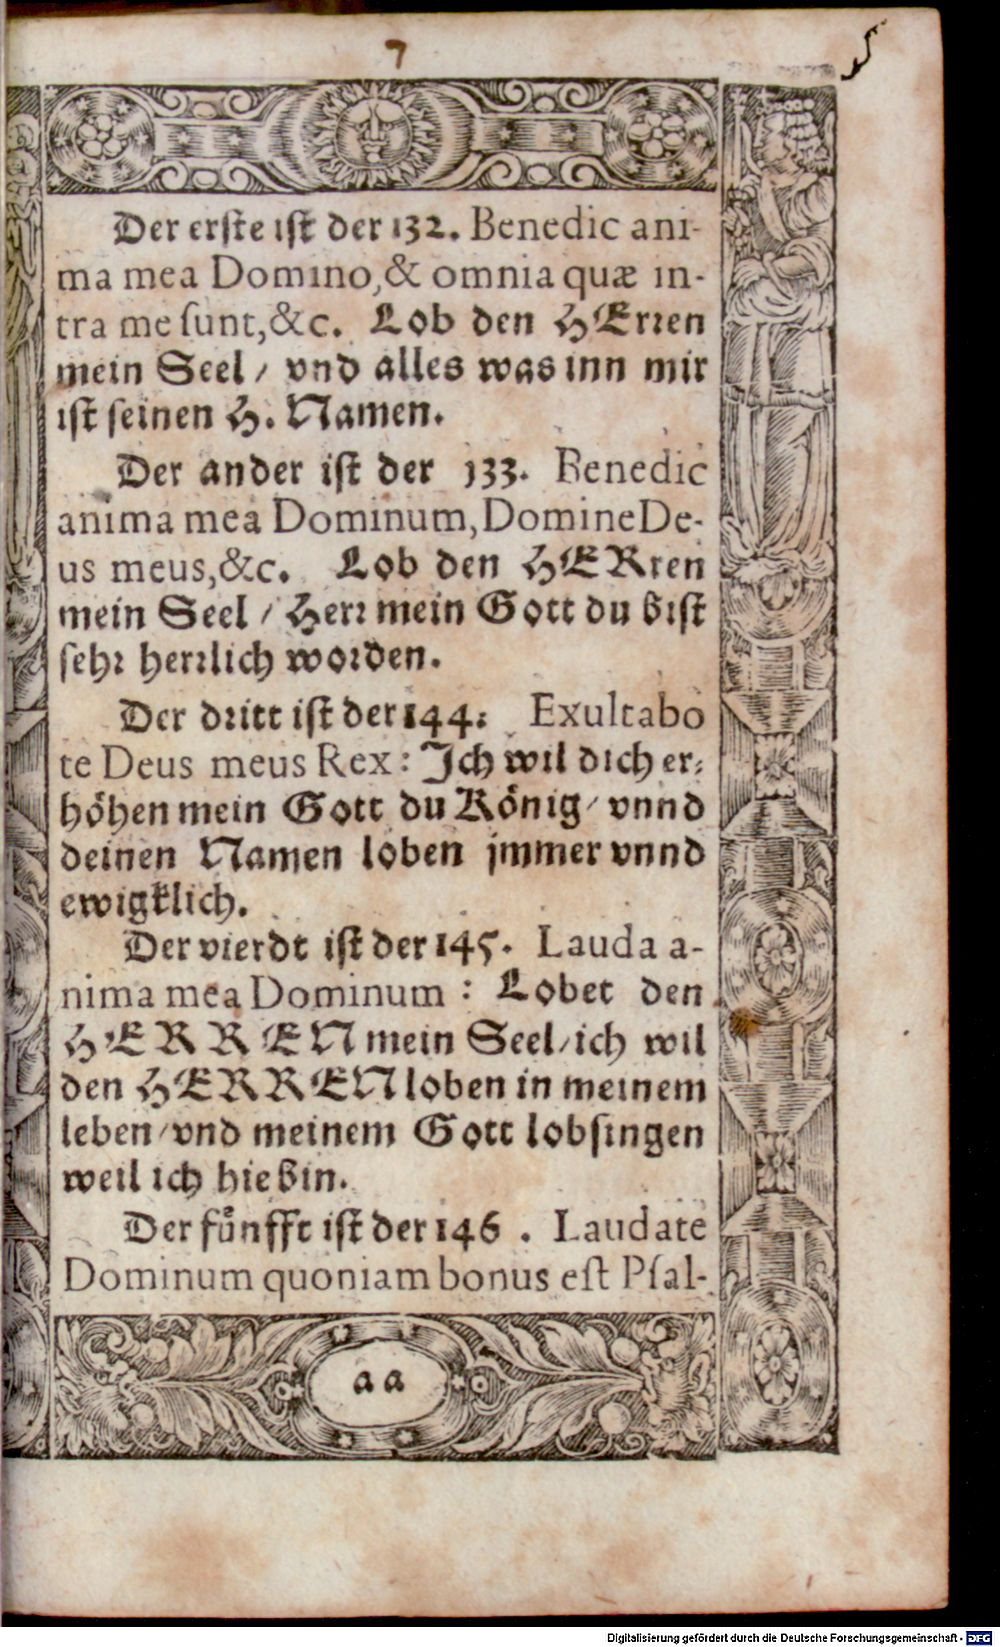 7
Der erſte iſt der 132. Benedic ani-
ma mea Domino, & omnia quæ in-
tra me ſunt, &c. Lob den HErren
mein Seel / vnd alles was inn mir
iſt ſeinen H. Namen.
Der ander iſt der 133. Benedic
anima mea Dominum, Domine De-
us meus, &c. Lob den HERren
mein Seel / Herr mein Gott du biſt
ſehr herrlich worden.
Der dritt iſt der 144: Exultabo
te Deus meus Rex : Jch wil dich er-
höhen mein Gott du König / vnnd
deinen Namen loben jmmer vnnd
ewigklich.
Der vierdt iſt der 145. Lauda a-
nima mea Dominum : Lobet den
HERREN mein Seel / ich wil
den HERREN loben in meinem
leben / vnd meinem Gott lobſingen
weil ich hie bin.
Der fuͤnfft iſt der 146. Laudate
Dominum quoniam bonus eſt Pſal-
aa
Digitalisierung gefördert durch die Deutsche Forschungsgemeinschaft - DFG